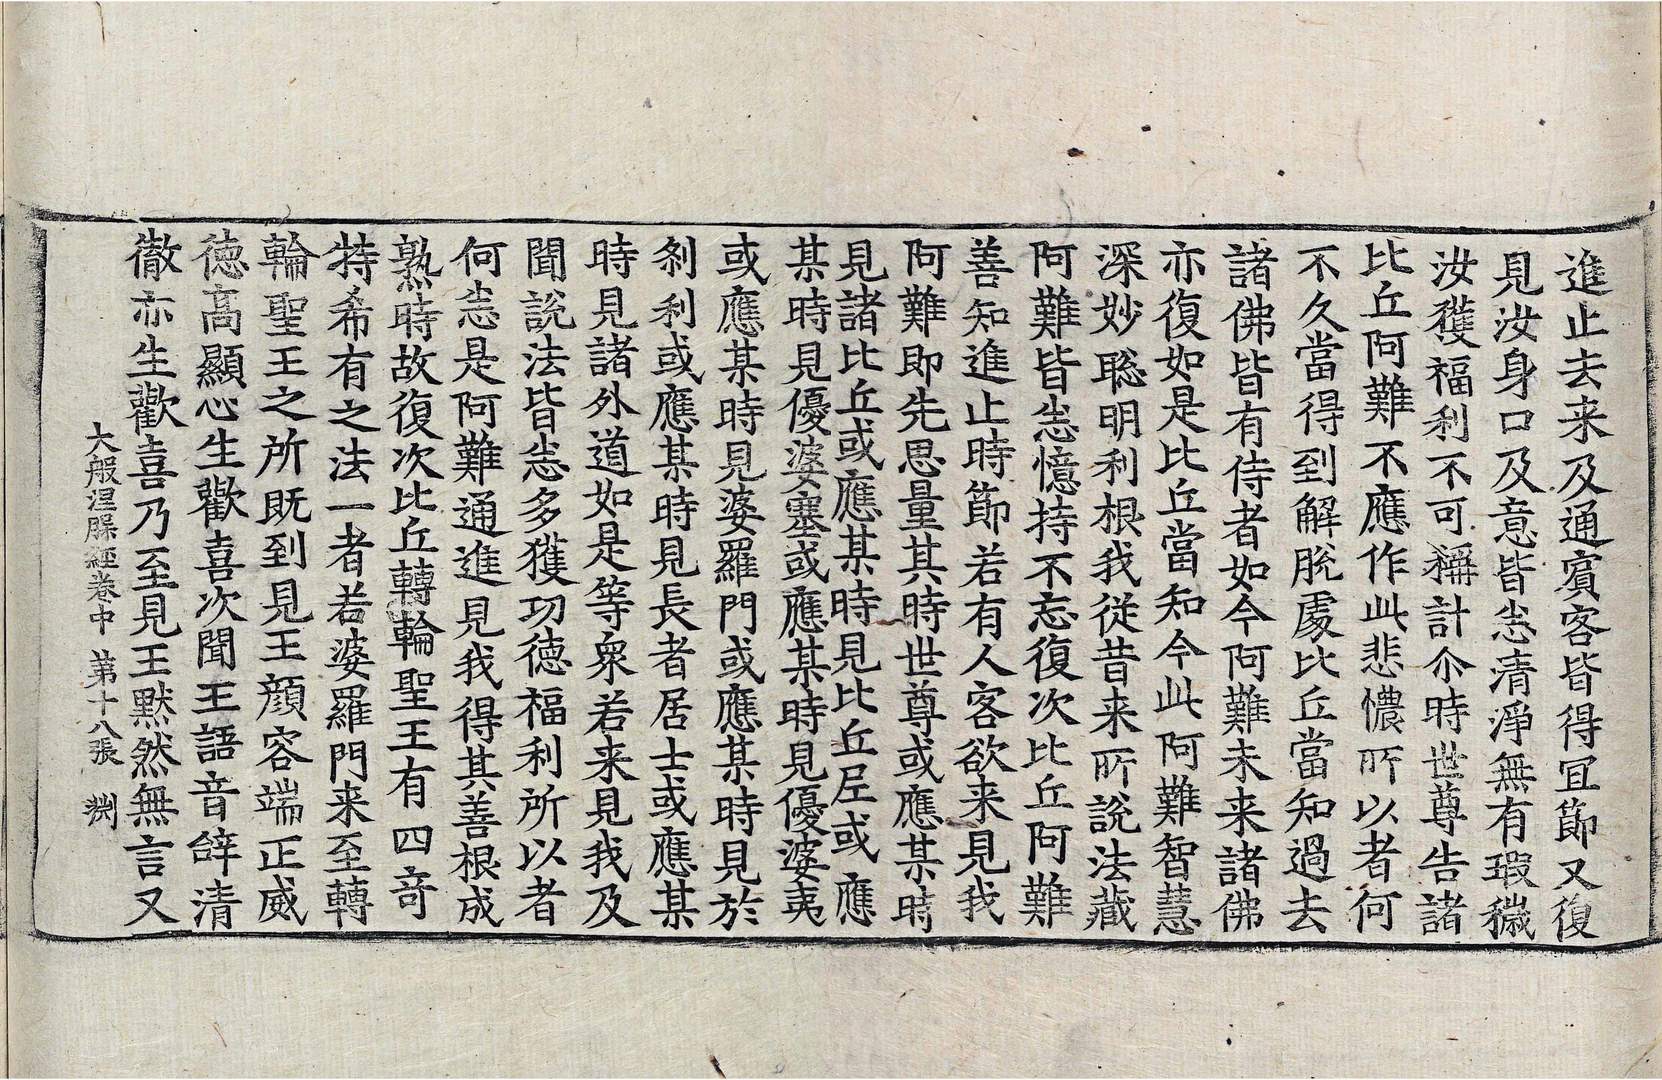 進止去来及通賔客皆得冝節又復
見汝身口及意皆悉清淨無有瑕穢
汝獲福利不可稱計尒時世尊告諸
比丘阿難不應作此悲憹所以者何
不久當得到解脫處比丘當知過去
諸佛皆有侍者如今阿難未来諸佛
亦復如是比丘當知今此阿難智慧
深妙聡明利根我從昔来所說法藏
阿難皆悉憶持不忘復次比丘阿難
善知進止時節若有人客欲来見我
阿難即先思量其時世尊或應某時
見諸比丘或應某時見比丘尼或應
某時見優婆塞或應某時見優婆夷
或應某時見婆羅門或應某時見於
刹利或應某時見長者居士或應某
時見諸外道如是等衆若来見我及
聞說法皆悉多獲功德福利所以者
何悉是阿難通進見我得其善根成
熟時故復次比丘轉輪聖王有四奇
特希有之法一者若婆羅門来至轉
輪聖王之所既到見王顔容端正威
徳高顯心生歡喜次聞王語音辝清
徹亦生歡喜乃至見王黙然無言又
大般涅槃經卷中　第十八張　渕